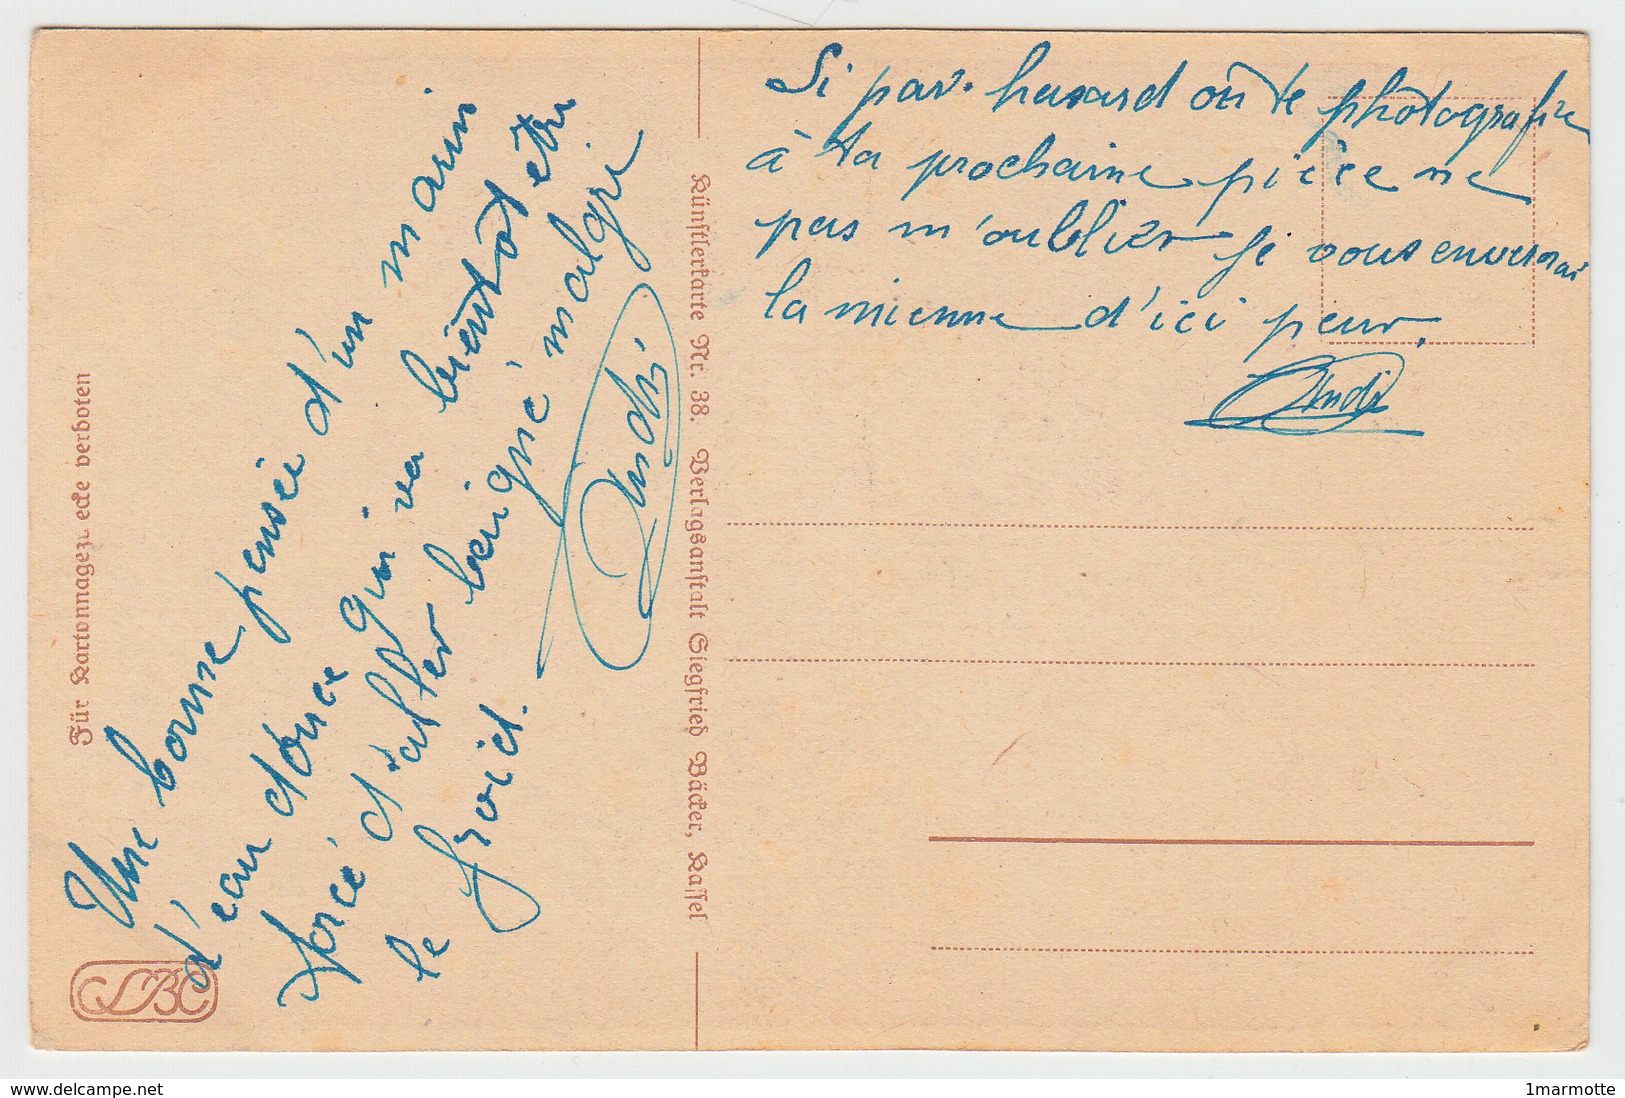 Une bonne pensée d'un marin
d'eau douce qui va bientôt être
forcé d'aller beigné malgré
le froid.
André
Si par hasard on te photografie
à ta prochaine pièce ne
pas m'oublier je vous enverrai
la mienne d'ici peur.
André
Künstlerkarte Nr. 38. Verlagsanstalt Siegfried Bäcker, Kassel
Für Kartonnagezwecke verboten
SBC
delcampe.net
1marmotte